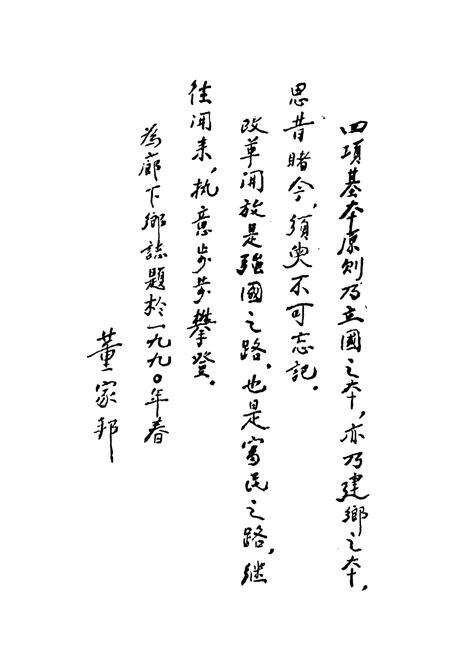 四項基本原则乃立國之本，亦乃建鄉之本，
思昔睹今，須臾不可忘記。
改革开放是強國之路，也是富民之路，継
往开来，执意步步攀登。
為廊下鄉誌題於一九九〇年春
董家邦